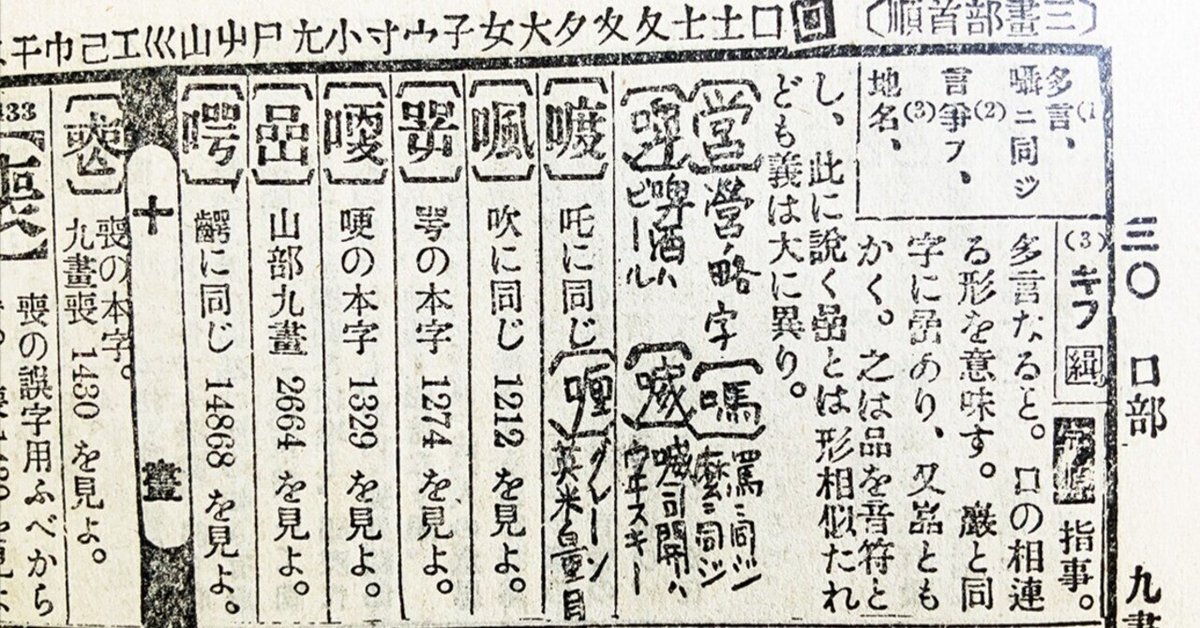 〔三畫部首順〕 囗口土士夂夊夕大女子宀寸小尢尸屮山巛工己巾干
三〇 口部 九畫
(1)多言、
囁ニ同ジ
(2)言爭フ、
(3)地名、
(3)キフ 緝
指事。
多言なること。口の相連
る形を意味す。巖と同
字に嵒あり、又嵓とも
かく。之は品を音符と
し、此に說く喦とは形相似たれ
ども義は大に異り。
〔営〕營ノ略字
〔嗎〕罵ニ同ジ 麼ニ同ジ
〔啤〕啤酒ハビール
〔喊〕
〔喥〕吒に同じ
〔喱〕グレーン 英米皇量目
〔㗘〕吹に同じ 1212 を見よ。
〔咢〕咢の本字 1274 を見よ。
哽の本字 1329 を見よ。
〔喦〕山部九畫 2664 を見よ。
〔㗁〕齶に同じ 14868 を見よ。
十畫
喪の本字。
九畫喪 1430 を見よ。
433
喪の誤字用ふべから